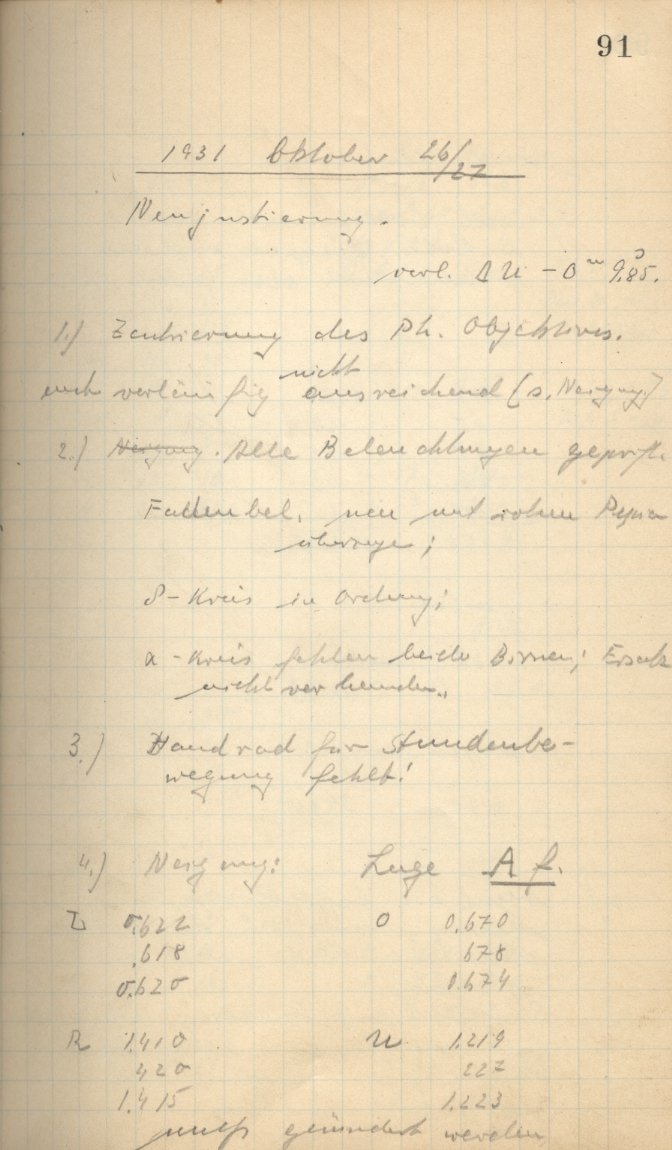 91
1931 Oktober 26/27
Neujustierung.
verl. Δ U – 0ᵐ 9ˢ.85.
1.) Zentrierung des Ph. Objektives.
nicht
vorläufig ausreichend (s. Neigung)
2.) Neigung. Alle Beleuchtungen geprüft.
Fadenbel. neu mit rotem Papier
überzogen;
δ - Kreis in Ordnung;
α - Kreis fehlen beide Birnen; Ersatz
nicht vorhanden.
3.) Handrad für Stundenbe-
wegung fehlt!
4.) Neigung: Lage A f.
0.622 O 0.670
.618 678
0.620 0.674
R 1.410 U 1.219
420 227
1.415 1.223
muß geändert werden